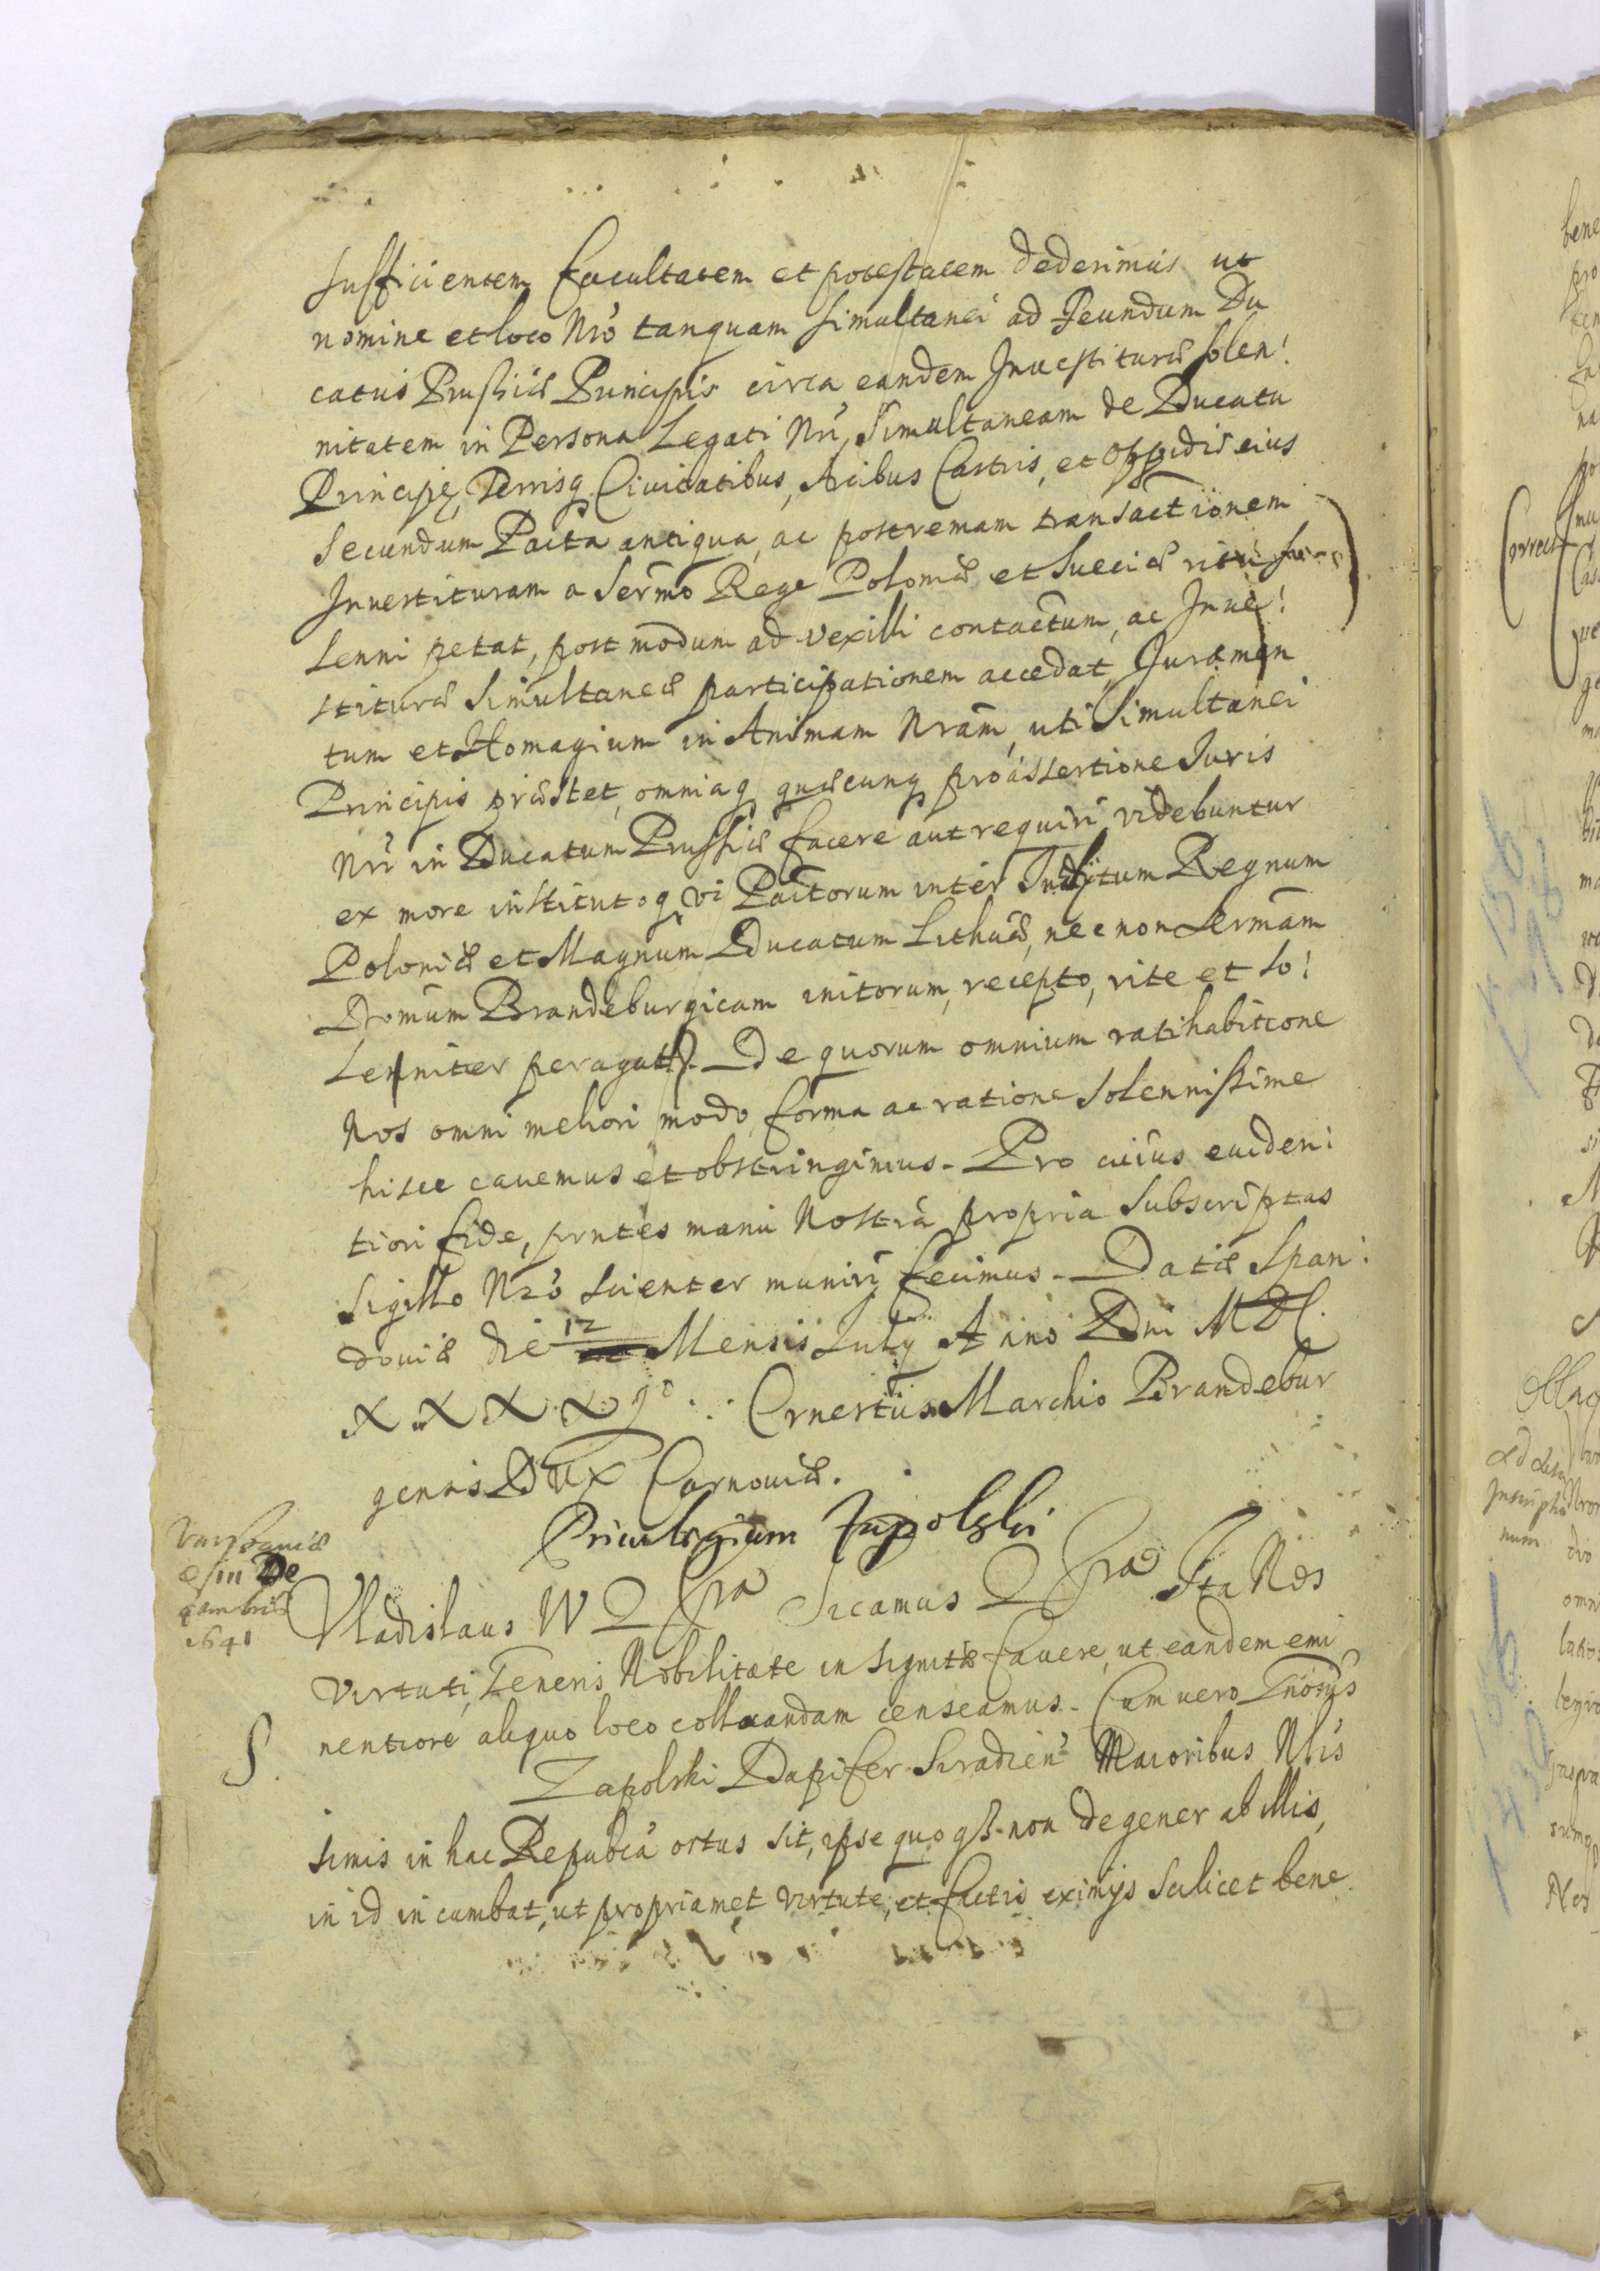 sufficientem facultatem et potestatem dederimus ut
nomine et loco Nro tanquam simultanei ad Feundum Du
catus Prussiæ Principis circa eandem Inuestituræ solen:
nitatem in Persona Legati Nri, Simultaneam de Ducatu
Principe, Terrisq Ciuitatibus, Acibus Castris, et Oppidis eius
secundum Pacta antiqua, ac postremam transactionem
Inuestituram a Sermo Rege Poloniæ et Sueciæ ritu
lenni petat, post modum ad vexilli contactum, ac Inue:
stituræ simultaneæ participationem accedat, Juramen
tum et Homagium in Animam Nram, uti Simultanei
Principis præstet, omniaq quæcunq pro assertione Juris
Nri in Ducatum Prussiæ facere aut requiri videbuntur
ex more institutoq vi Pactorum inter Inclytum Regnum
Poloniæ et Magnum Ducatum Lithuæ, nec non Sermam
Domum Brandeburgicam initorum, recepto, rite et so:
lenniter peragat). De quorum omnium ratihabitione
Nos omni meliori modo, forma ac ratione solennissime
hisce cauemus et obstringimus. Pro cuius euiden:
tiori fide, prntes manu Nostra propria subscriptas
sigillo Nro scienter muniri fecimus. Datæ Span:
douiæ die 12 Mensis July Anno Dni MDC.
XXXXI° Ernestus Marchio Brandebur
gensis Dux Carnouiæ.
Priuilegium Zapolski
Varsauiæ
in De
cembris
1641
Vladislaus IV D Gra Sicamus D Gra Ita Nos
virtuti, Generis Nobilitate insignitæ fauere, ut eandem emi
nentiore aliquo loco collocandam censeamus. Cum vero Gnosus
S.
Zapolski Dapifer Siradien Maioribus Nbis
simis in hac Repubca ortus sit, ipse quoq non degener ab illis,
in id incumbat, ut propriamet virtute, et factis eximijs scilicet bene